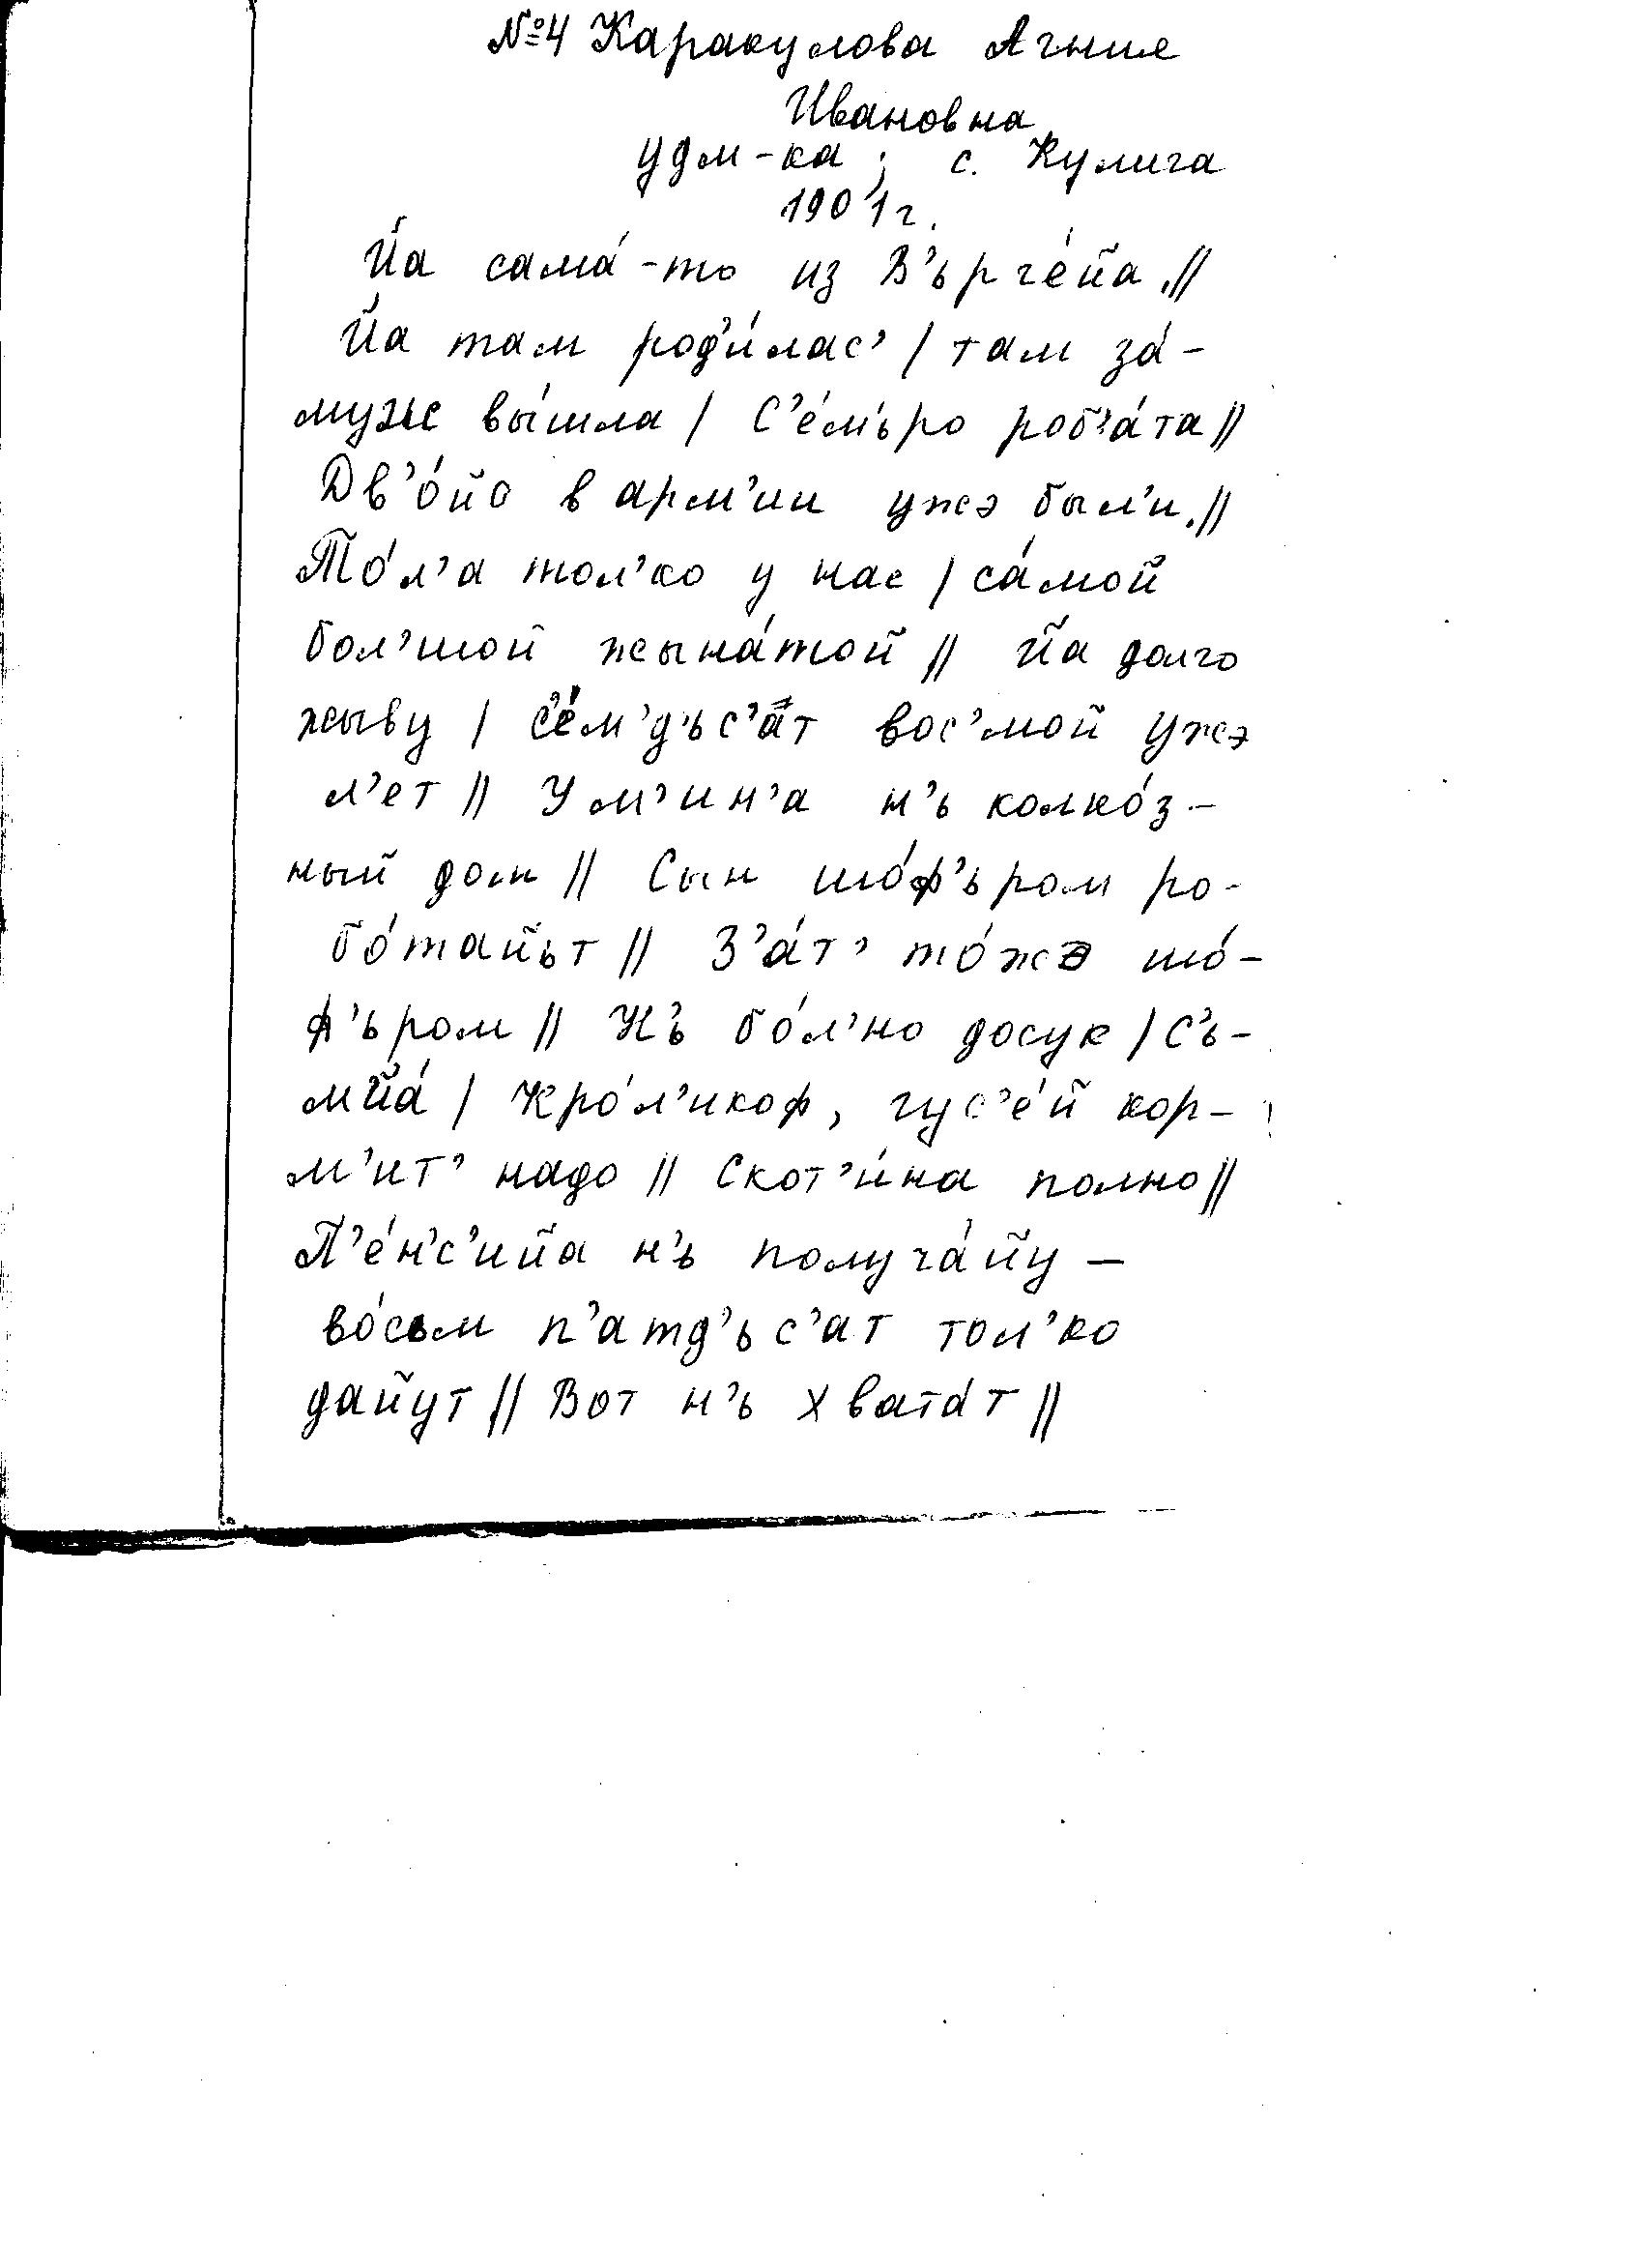 №4 Каракулова Агния
Ивановна
удм-ка; с. Кулига
1901г.
Йа сама́-то из В’ърге́йа.//
Йа там род’и́лас’ / там за́-
муже вы́шла / С’е́м’ьро роб’а́та //
Дв’о́йо в арм’ии ужэ был’и.//
То́л’а тол’ко у нас / са́мой
бол’шой жына́той // Йа долго
жыву / С’е́м’д’ьс’а́т вос’мой ужэ
л’ет // У м’ин’а н’ь колхо́з-
ный дом // Сын шо́ф’ьром ро-
бо́тайьт // З’а́т’ то́жэ шо́-
ф’ьром // Н’ь бо́л’но досук / С’ь-
мйа́ / Кро́л’икоф, гус’е́й кор-
м’ит’ надо // Скот’и́на полно //
П’е́н’с’ийа н’ь получа́йу –
во́сьм п’атд’ьс’ат тол’ко
дайут // Вот н’ь хвата́т //